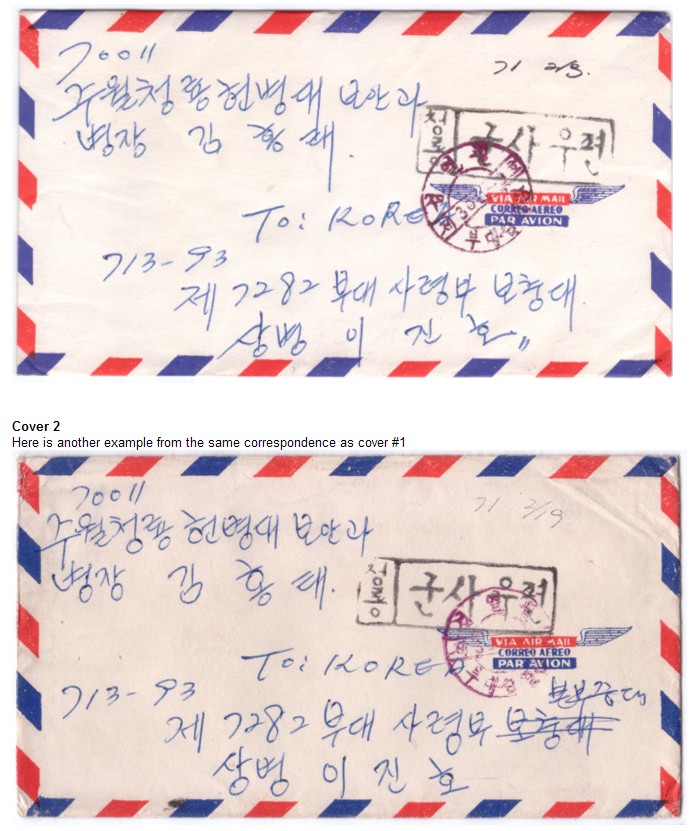 70011
71 2/3.
주월청룡헌병대 보안과
병장 김 홍 태.
군사우편
VIA AIR MAIL
CORREO AEREO
PAR AVION
To: KOREA
713-93
제 7282 부대 사령부 보충대.
상병 이 진 호"
Cover 2
Here is another example from the same correspondence as cover #1
70011
71 3/19
주월청룡 헌병대 보안과
병장 김 홍 태.
군사우편
VIA AIR MAIL
CORREO AEREO
PAR AVION
To: KOREA
713-93
본부중대
제 7282 부대 사령부 보충대
상병 이 진 호